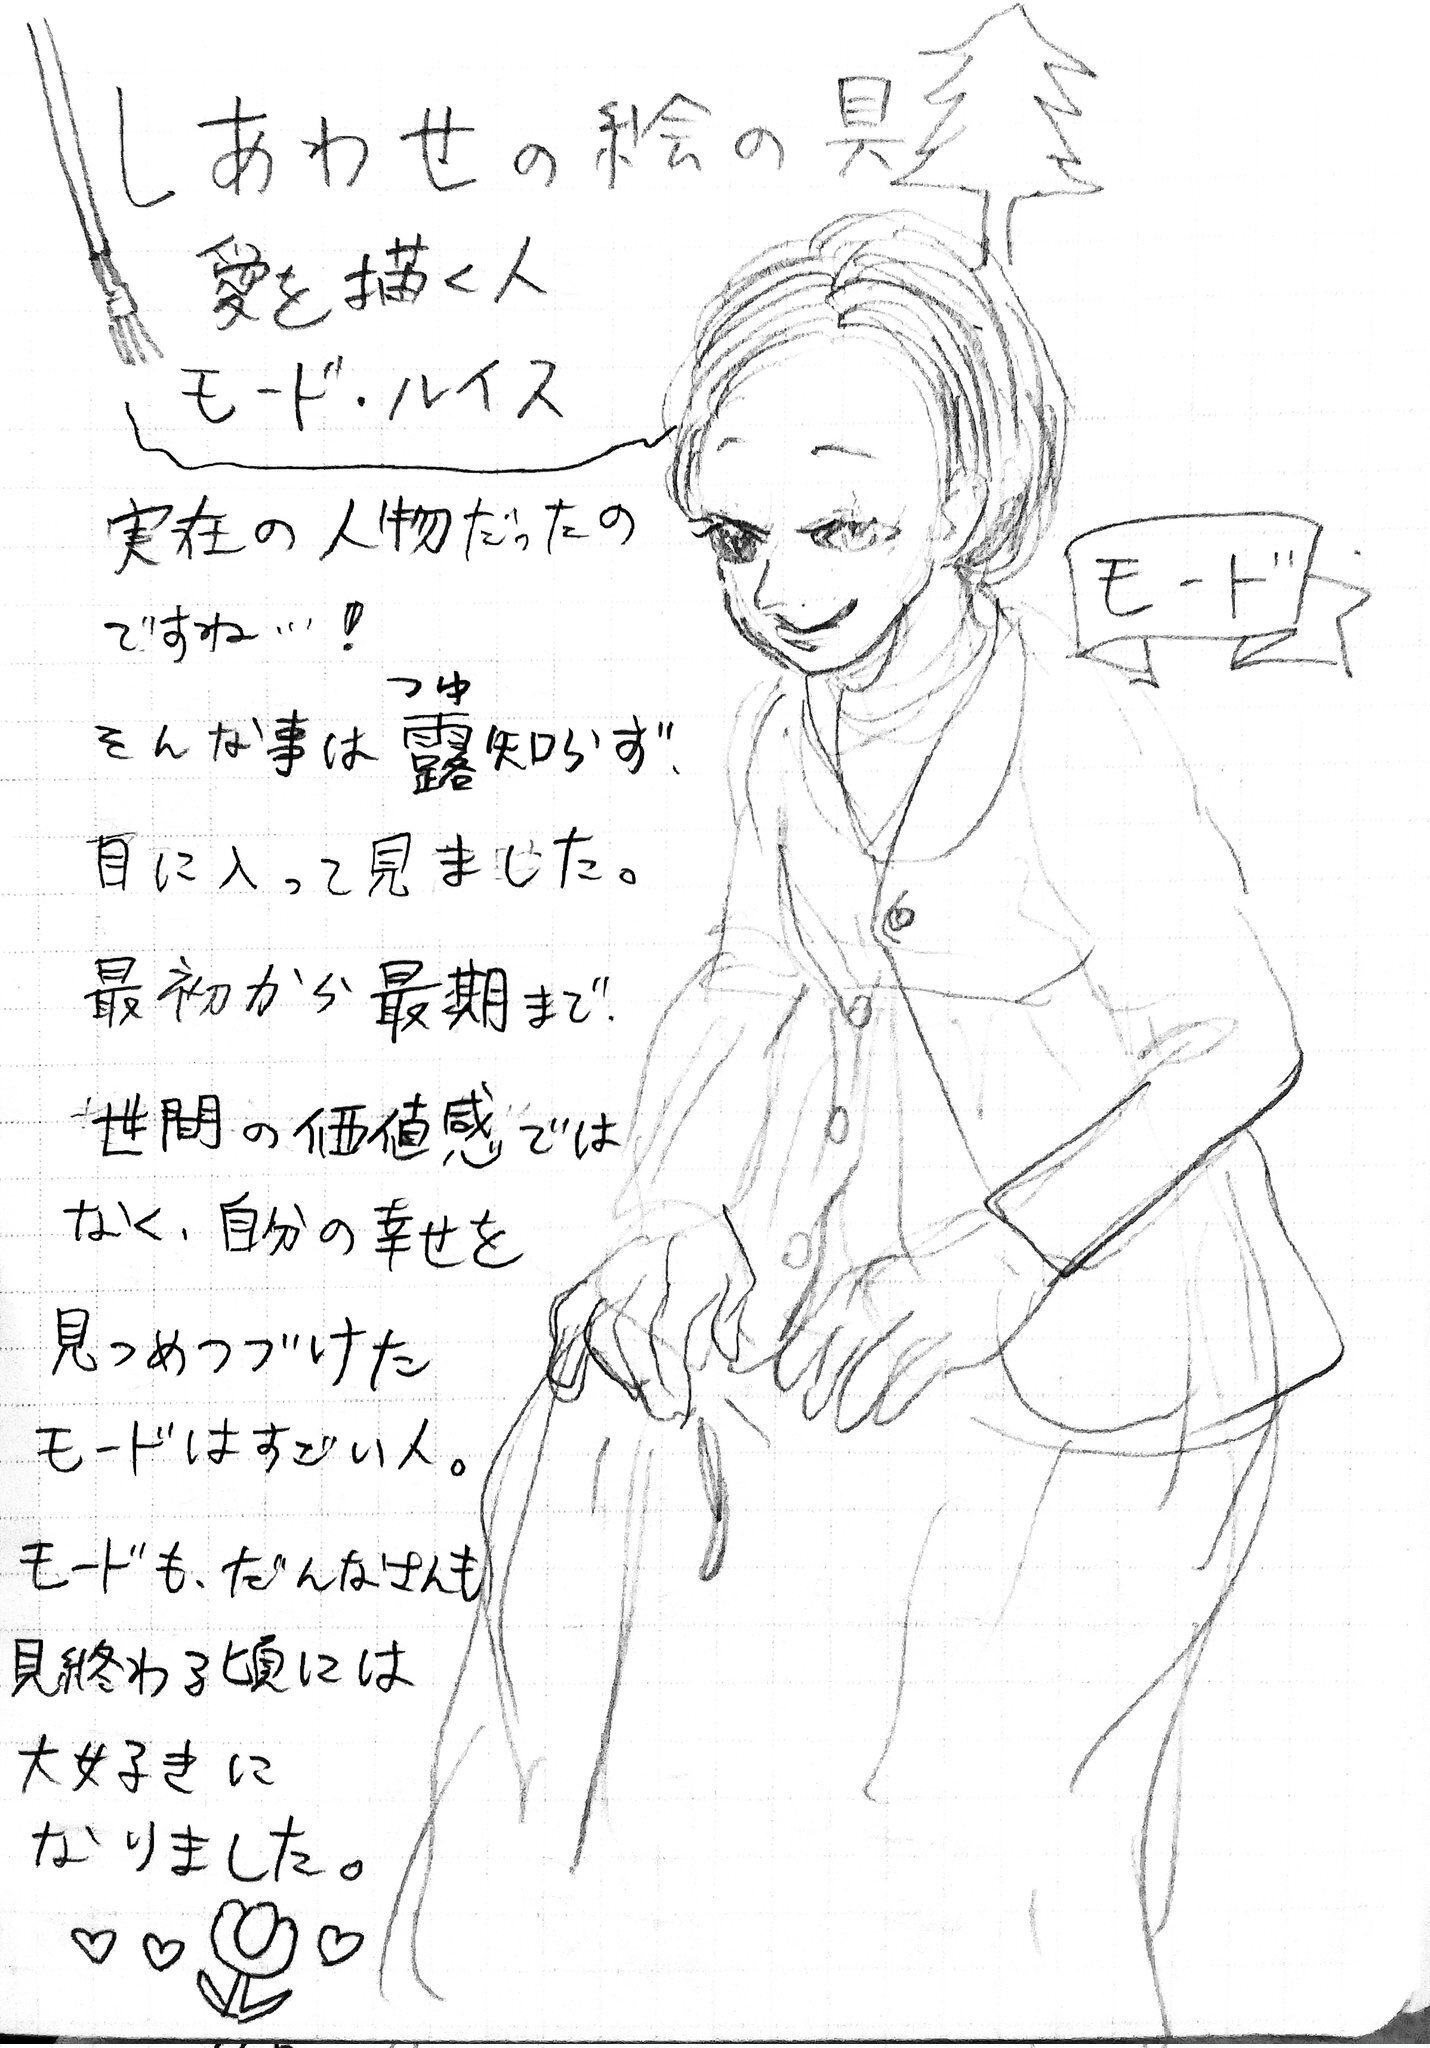 しあわせの絵の具
愛を描く人
モード・ルイス
実在の人物だったの
ですね…!
そんな事は露知らず、
つゆ
目に入って見ました。
最初から最期まで、
世間の価値感では
なく、自分の幸せを
見つめつづけた
モードはすごい人。
モードも、だんなさんも
見終わる頃には
大好きに
なりました。
モード